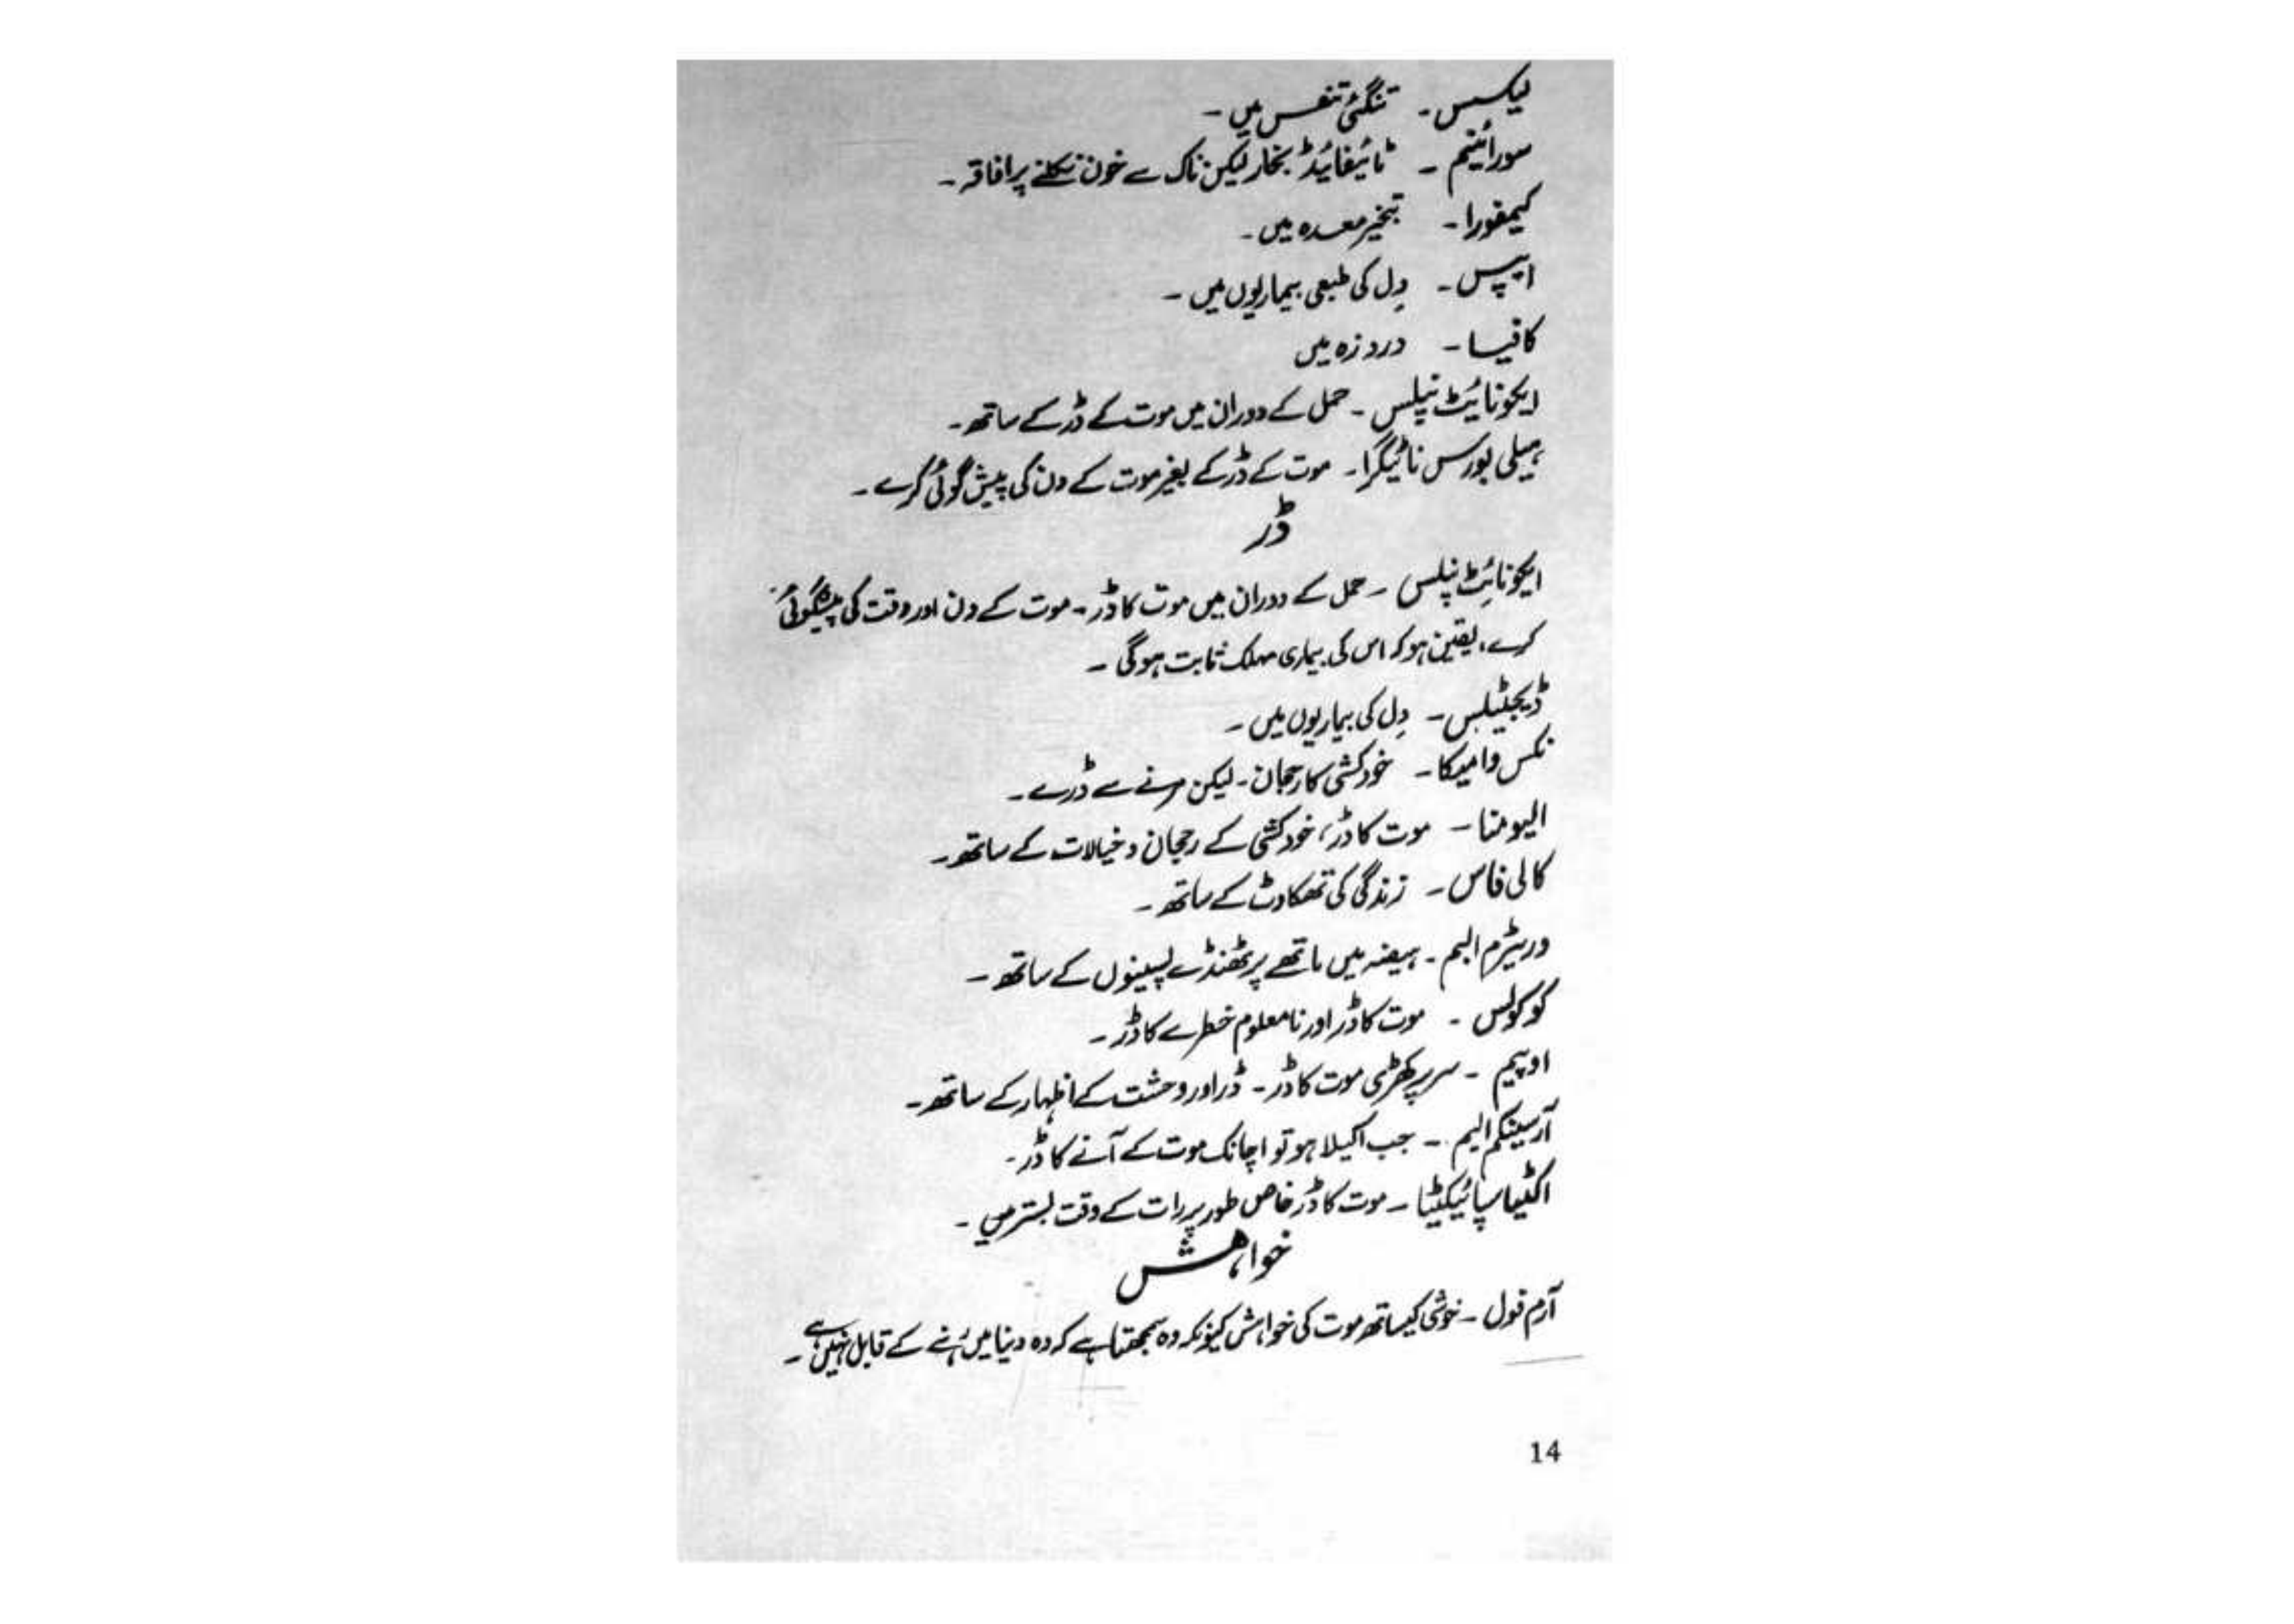 لیکسس - تنگئ تنفس میں -
سورائینم - ٹائیفائیڈ بخار لیکن ناک سے خون نکلنے پر افاقہ -
کیمفورا - تبخیر معدہ میں -
ایپس - دِل کی طبعی بیماریوں میں -
کافیا - دردزہ میں
ایکونائیٹ نیپلس - حمل کے دوران میں موت کے ڈر کے ساتھ -
ہیلی بورس نائیگرا - موت کے ڈر کے بغیر موت کے دن کی پیش گوئی کرے -
ڈر
ایکونائیٹ نیپلس - حمل کے دوران میں موت کا ڈر - موت کے دن اور وقت کی پیشگوئی
کرے، یقین ہو کہ اس کی بیماری مہلک ثابت ہوگی -
ڈیجیٹیلس - دِل کی بیماریوں میں -
نکس وامیکا - خودکشی کا رجحان - لیکن مرنے سے ڈرے -
الیومنا - موت کا ڈر، خودکشی کے رجحان و خیالات کے ساتھ -
کالی فاس - زندگی کی تھکاوٹ کے ساتھ -
وریٹرم البم - ہیضہ میں ماتھے پر ٹھنڈے پسینوں کے ساتھ -
کوکولس - موت کا ڈر اور نامعلوم خطرے کا ڈر -
اوپیم - سر پر کھڑی موت کا ڈر - ڈر اور وحشت کے اظہار کے ساتھ -
آرسینکم البم - جب اکیلا ہو تو اچانک موت کے آنے کا ڈر -
اکٹیا سپائیکیٹا - موت کا ڈر خاص طور پر رات کے وقت بستر میں -
خواہش
آرم فول - خوشی کیساتھ موت کی خواہش کیونکہ وہ سمجھتا ہے کہ وہ دنیا میں رہنے کے قابل نہیں ہے -
14